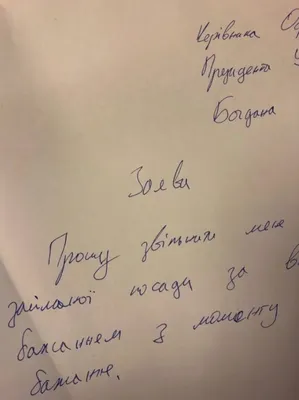 Керівника О
Президента У
Богдана
Заява
Прошу звільнити мене
займаної посади за в
бажанням з моменту
бажання.